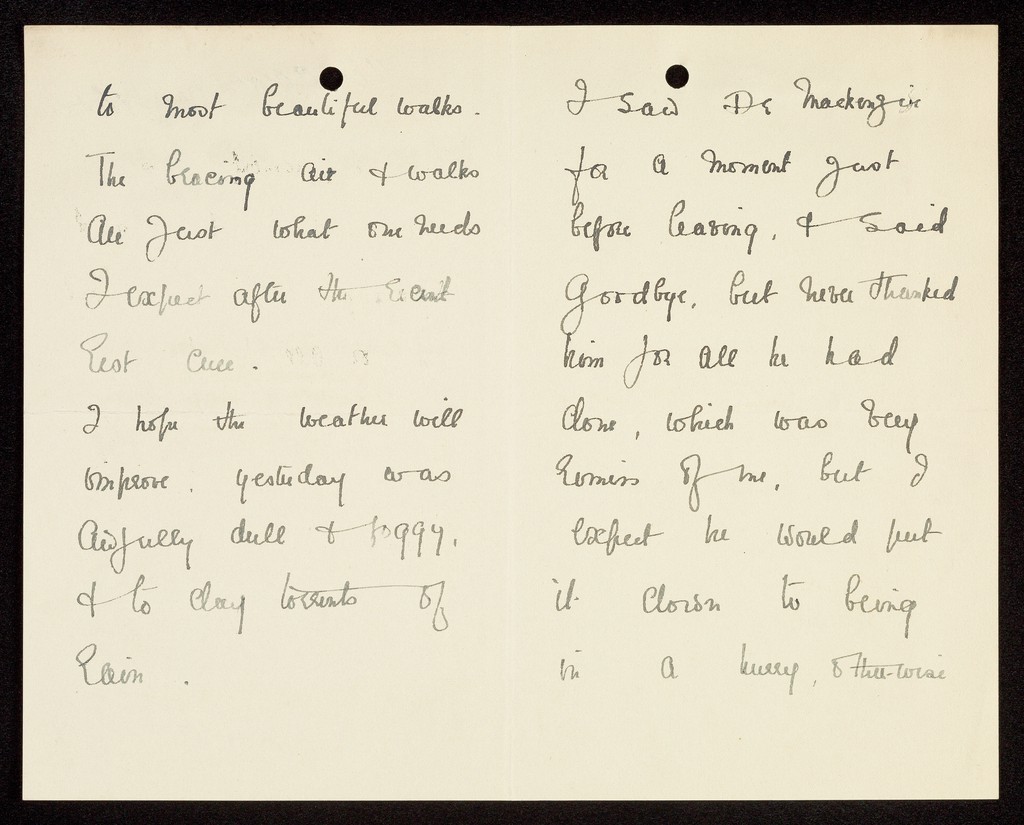 to most beautiful walks.
The bracing air & walks
are just what one needs
I expect after the recent
rest cure.
I hope the weather will
improve. yesterday was
awfully dull & foggy,
& to day torrents of
rain.
I saw Dr Mackenzie
for a moment just
before leaving, & said
Goodbye, but never thanked
him for all he had
done, which was very
remiss of me, but I
expect he would put
it down to being
in a hurry, otherwise